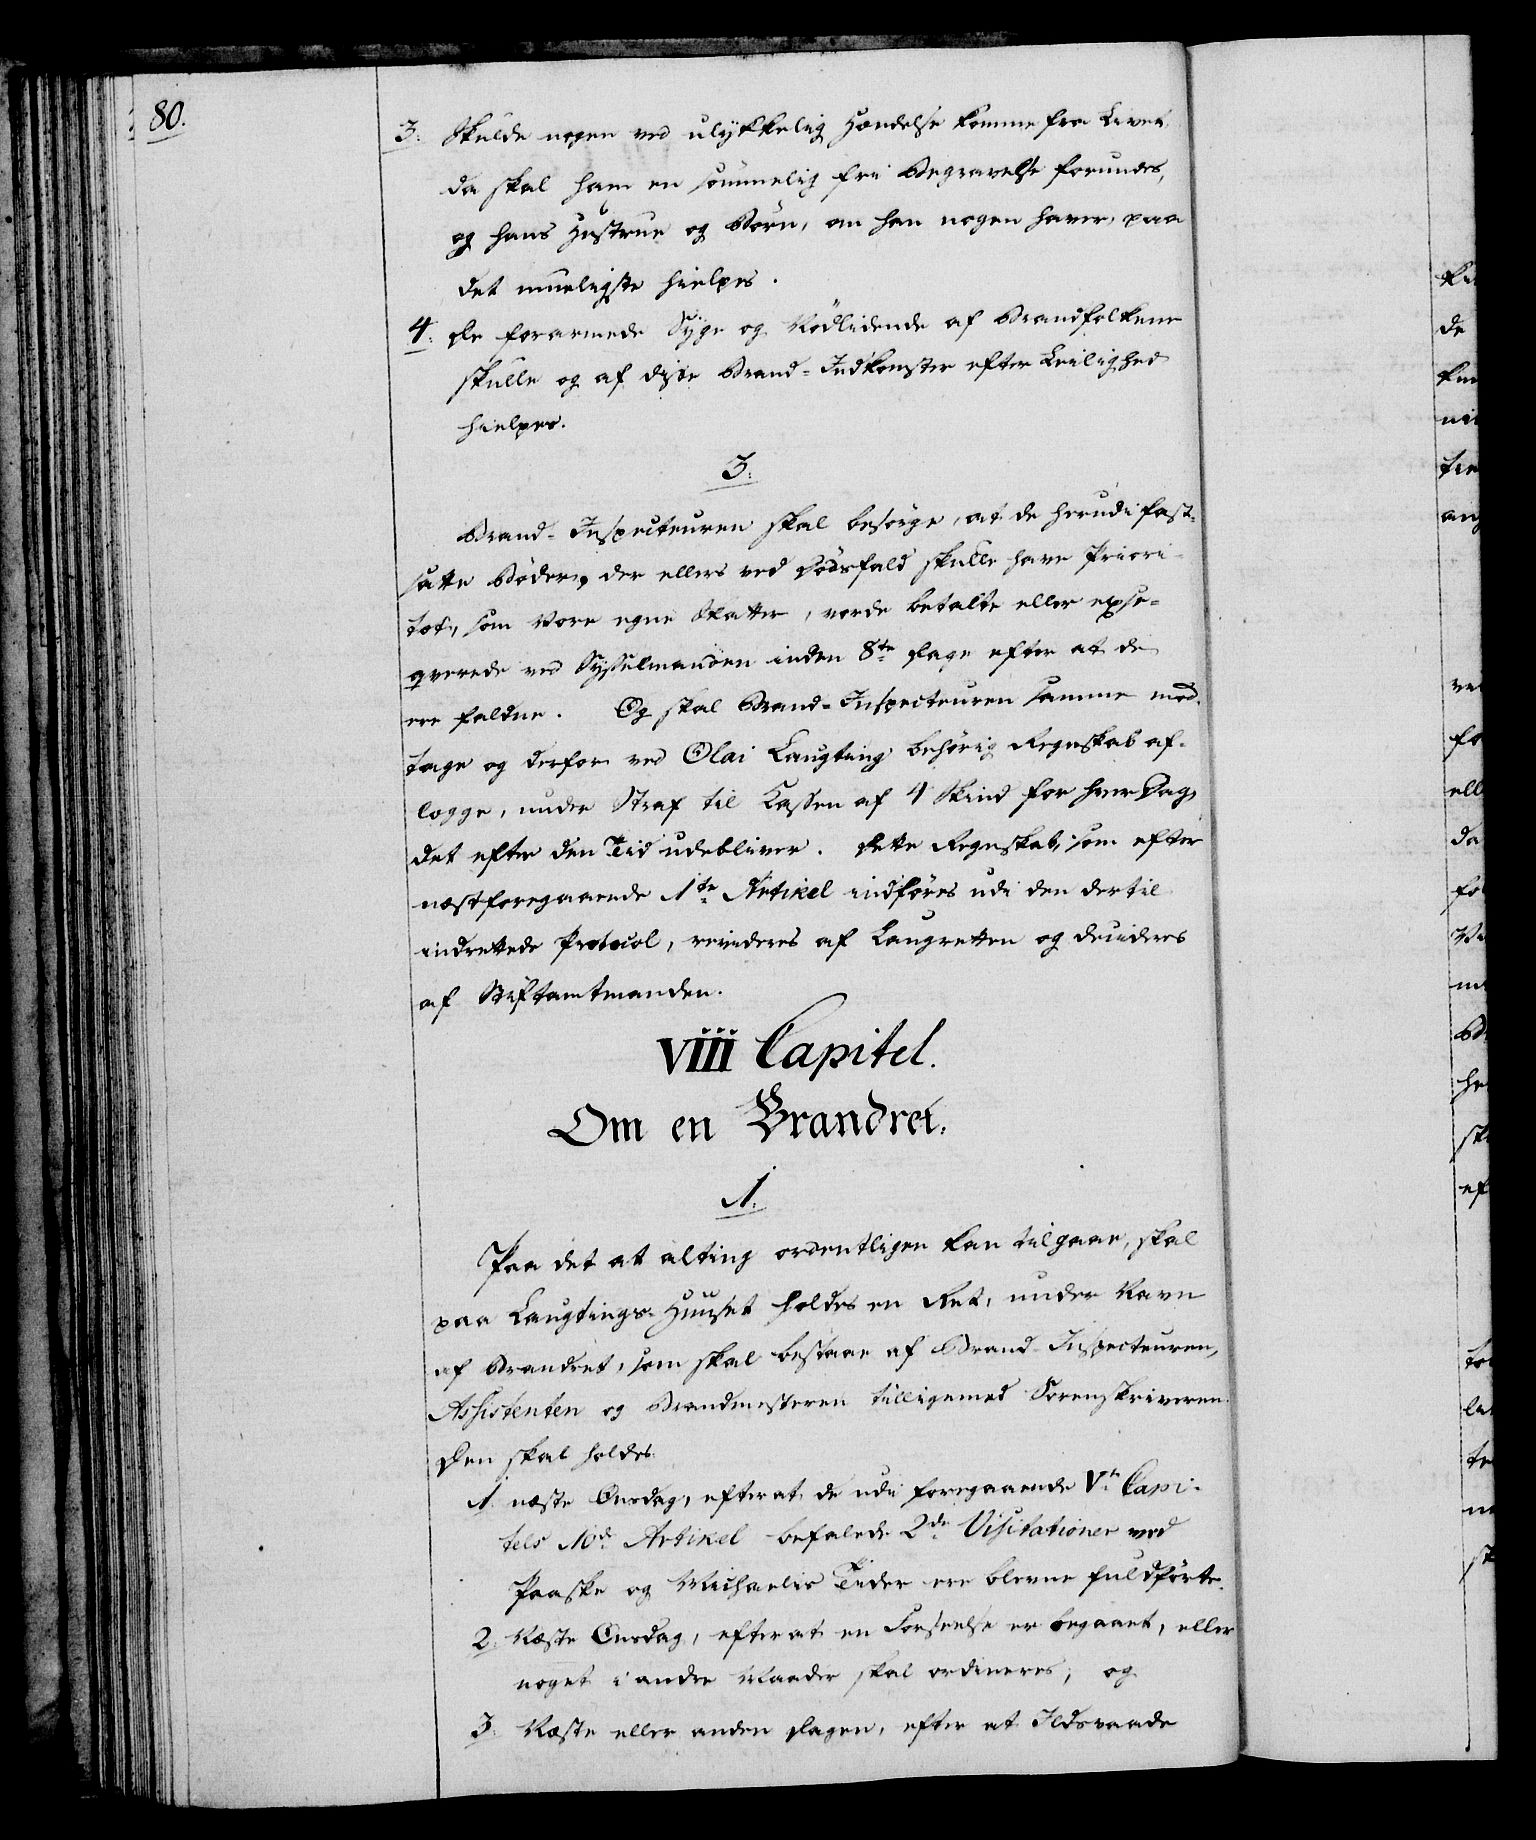 80.
3. Skulde nogen ved ulykkelig Hændelse komme fra Livet
da skal ham en sömmelig fri Begravelse forundes,
og hans Hustrue og Börn, om han nogen haver, paa
det mueligste hielpes.
4. De forarmede Syge og Nödlidende af Brandfolkene
skulle og af disse Brand-Indkomster efter Leilighed
hielpes.
3.
Brand-Inspecteuren skal besörge, at de herudi fast-
satte Böder, der ellers ved Dödsfald skulle have Priori-
tet, som Vore egne Skatter, vorde betalte eller exse-
qverede ved Sysselmanden inden 8te Dage efter at de
ere faldne. Og skal Brand-Inspecteuren samme mod-
tage og derfor ved Olai Laugting behörig Regnskab af-
legge, under Straf til Cassen af 4 Skind for hver Dag,
det efter den Tid udebliver. Dette Regnskab, som efter
næstforegaaende 1te Artikel indföres udi den dertil
indrettede Protocol, revideres af Laugretten og decideres
af Stiftamtmanden.
VIII Capitel.
Om en Brandret.
1.
Paa det at alting ordentligen kan tilgaae, skal
paa Laugtings-Huuset holdes en Ret, under Navn
af Brandret, som skal bestaae af Brand-Inspecteuren,
Assistenten og Brandmesteren tilligemed Sorenskriveren.
Den skal holdes
1. næste Onsdag, efterat de udi foregaaende Vte Capi-
tels 10de Artikel befalede 2de Visitationer ved
Paaske og Michaelis Tider ere blevne fuldförte.
2. Næste Onsdag, efterat en Forseelse er begaaet, eller
noget i andre Maader skal ordineres, og
3. Næste eller anden Dagen, efter at Ildsvaade